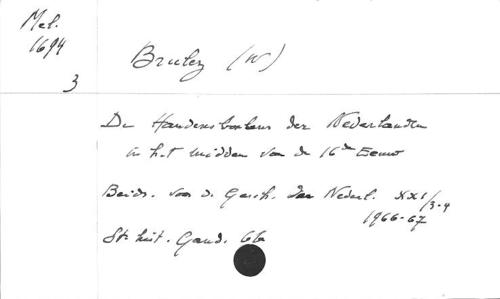 Mel.
1694
3
Brulez (W)
De Handelsbalans der Nederlanden
in het midden van de 16de Eeuw
Beidr. voor d. Gesch. der Nederl. XXI/3-4
1966-67
Gand. 66